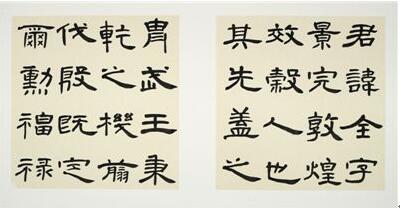 君諱全字
景完敦煌
效穀人也
其先蓋之
胄武王秉
乾之機翦
伐殷既定
爾勳福祿